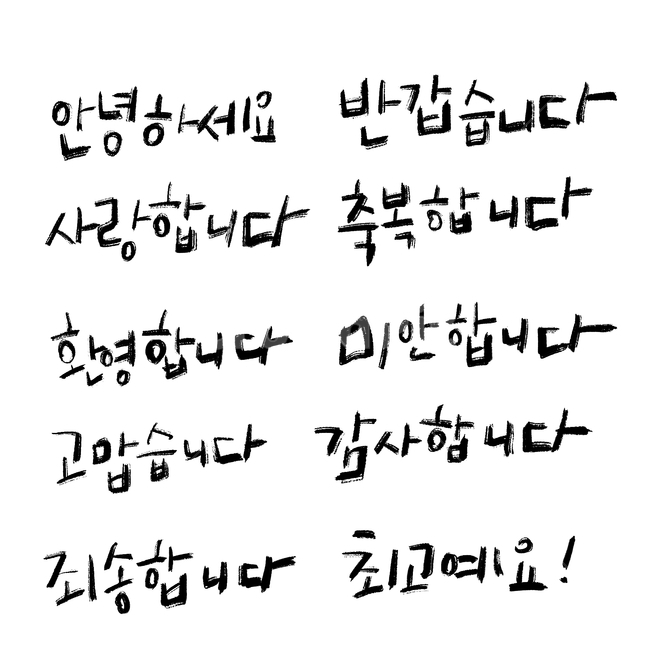 안녕하세요 반갑습니다
사랑합니다 축복합니다
환영합니다 미안합니다
고맙습니다 감사합니다
죄송합니다 최고예요!